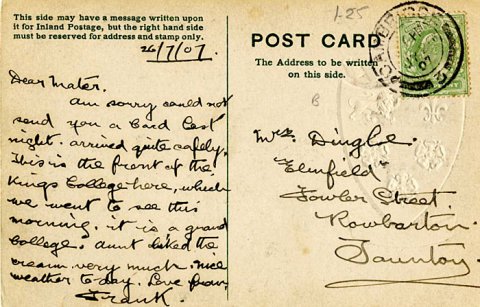 This side may have a message written upon
it for Inland Postage, but the right hand side
must be reserved for address and stamp only.
26/7/07.
Dear Mater.
am sorry could not
send you a Card last
night. arrived quite safely.
This is the front of the
Kings College here, which
we went to see this
morning. it is a grand
College. aunt liked the
cream very much. nice
weather to-day. Love from
Frank.
1-25
POST CARD
The Address to be written
on this side.
B
Mrs. Dingle.
Elmfield
Fowler Street.
Rowbarton.
Taunton